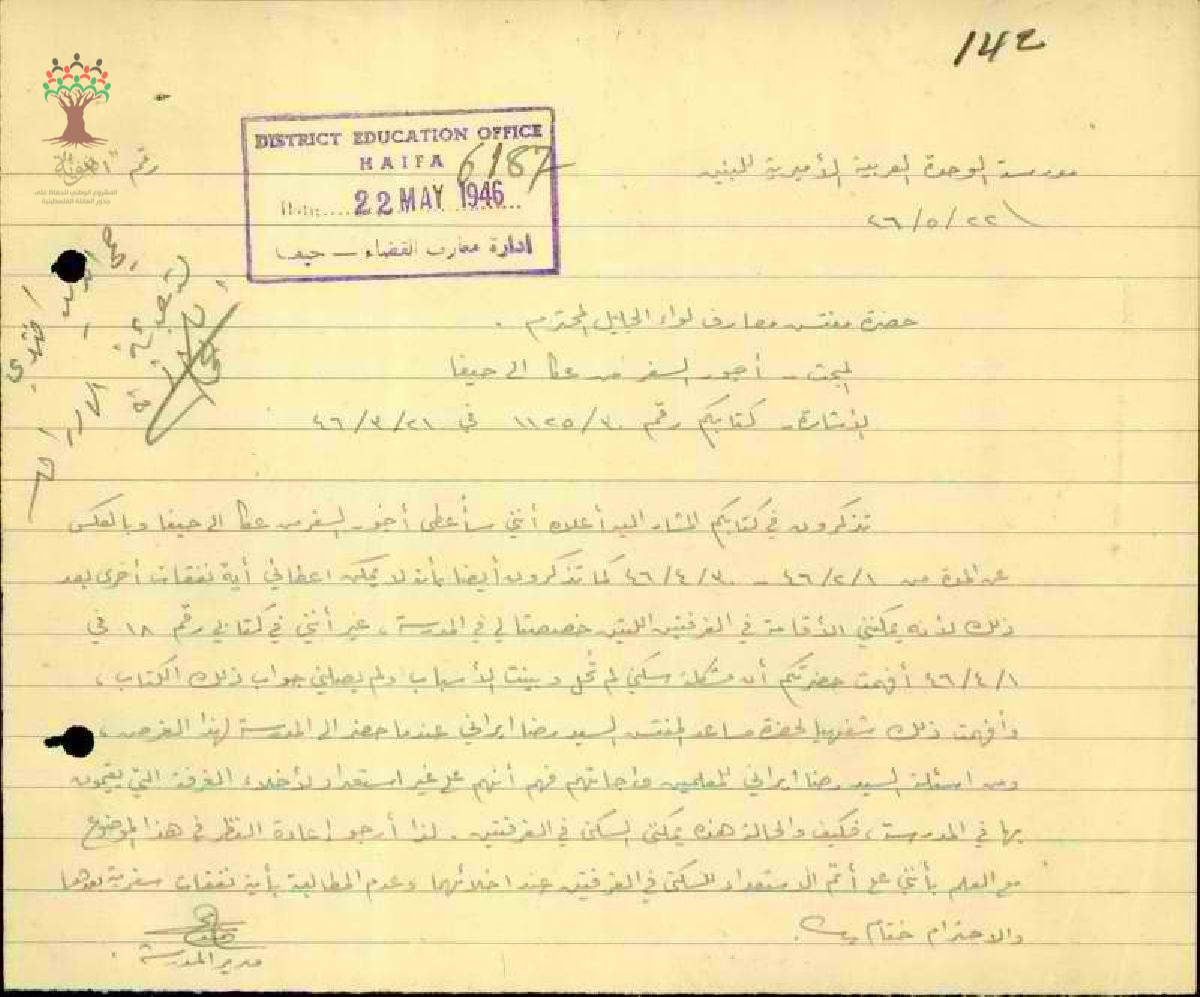 142
مدرسة الوحدة العربية الأميرية للبنين
٤٦/٥/٢٢
رقم
DISTRICT EDUCATION OFFICE
HAIFA
6187
Date 22 MAY 1946
ادارة معارف القضاء — حيفا
المشروع الوطني للحفاظ على
جذور العائلة الفلسطينية
حضرة مفتش معارف لواء الجليل المحترم .
المبحث - أجور السفر من عكا الى حيفا
الأشارة - كتابكم رقم ١١٢٥/٣٠ في ٤٦/٣/٢١
تذكرون في كتابكم المشار اليه أعلاه أنني سأعطى أجور السفر من عكا الى حيفا وبالعكس
عن المدة من ٤٦/٢/١ - ٤٦/٤/٣٠ كما تذكرون أيضا بأنه لا يمكن اعطائي أية نفقات أخرى بعد
ذلك لأنه يمكنني الأقامة في الغرفتين اللتين خصصتا لي في المدرسة ، غير أنني في كتابي رقم ١٨ في
٤٦/٤/١ أفهمت حضرتكم أن مشكلة سكني لم تُحل وبينت الأسباب ولم يصلني جواب ذلك الكتاب ،
وأفهمت ذلك شفهيا لحضرة مساعد المفتش السيد رضا ايراني عندما حضر الى المدرسة لهذا الغرض ،
ومن اسئلة السيد رضا ايراني للمعلمين واجاباتهم فهم أنهم على غير استعداد لأخلاء الغرفة التي يقيمون
بها في المدرسة ، فكيف والحالة هذه يمكنني السكنى في الغرفتين . لذا أرجو إعادة النظر في هذا الموضوع
مع العلم بأنني على أتم الاستعداد للسكنى في الغرفتين عند اخلائهما وعدم المطالبة بأية نفقات سفرية بعدها
والاحترام ختام
مدير المدرسة .